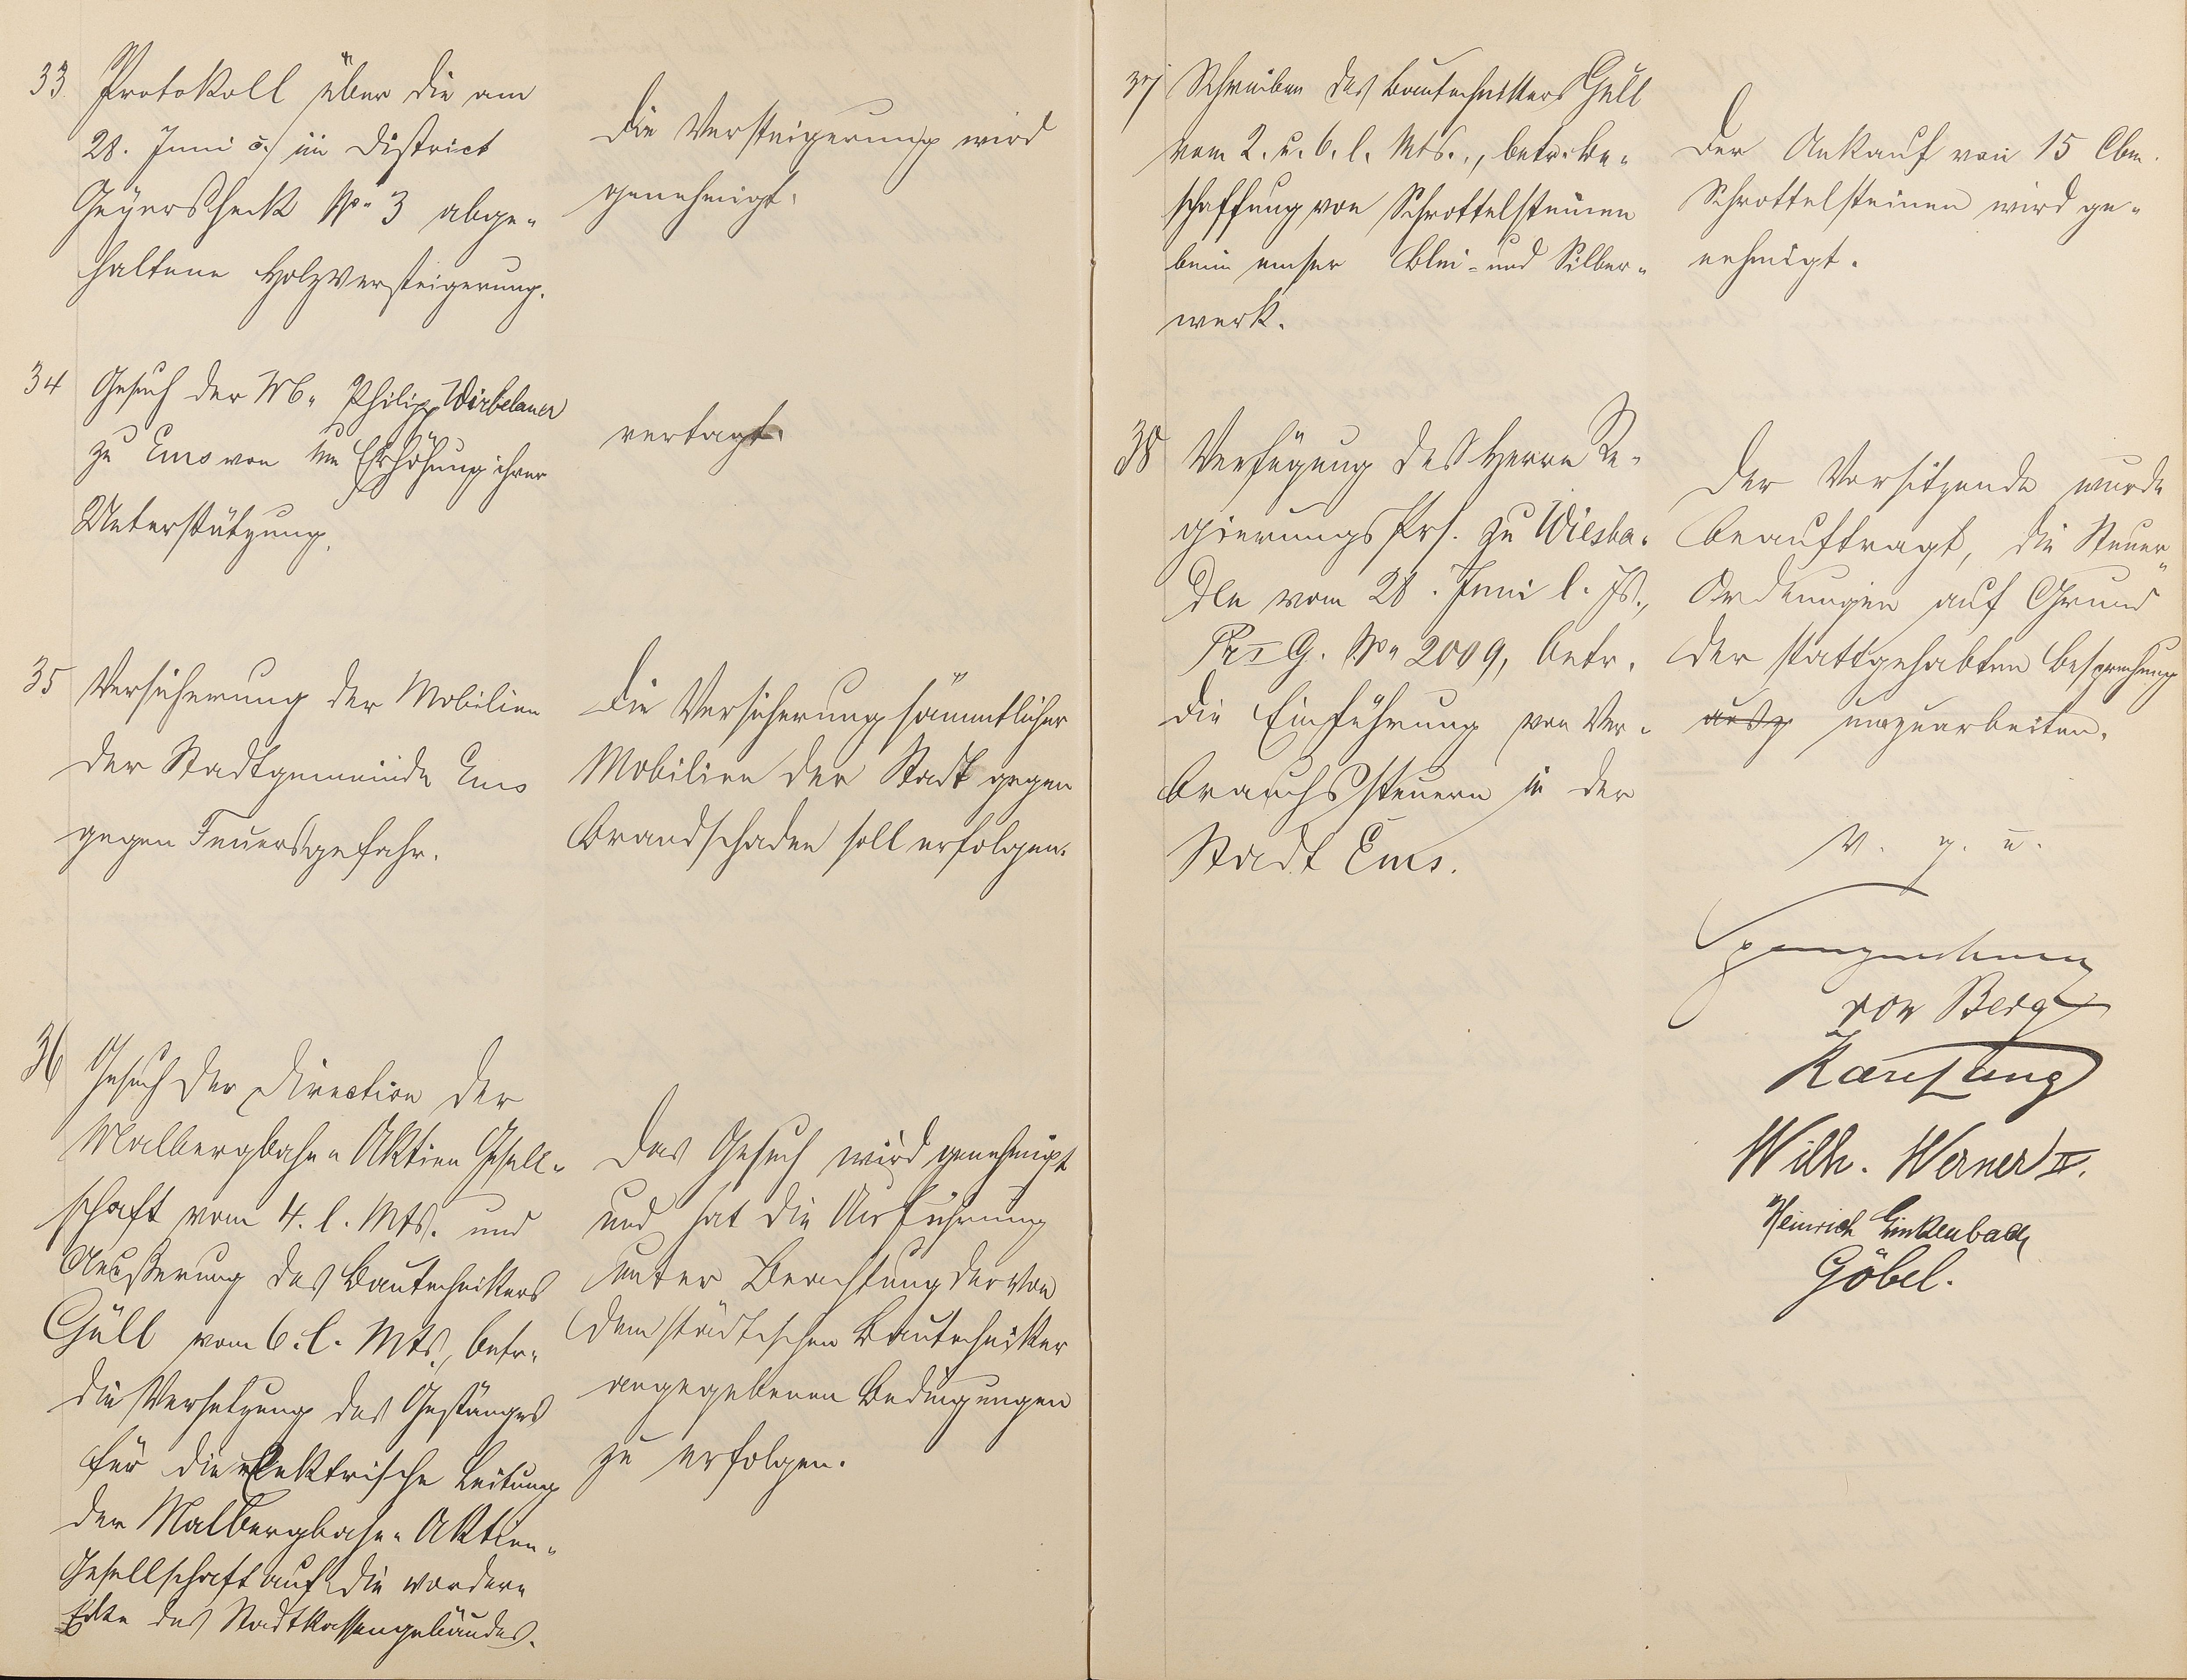 33 Protokoll über die am
28. Juni c. im District
Geyersheck No 3 abge-
haltene Holzversteigerung.
Die Versteigerung wird
genehmigt.
34 Gesuch der Philipp Wirbelauer
zu Ems von um Erhöhung ihrer
Unterstützung.
vertagt.
35 Versicherung der Mobilien
der Stadtgemeinde Ems
gegen Feuersgefahr.
Die Versicherung sämmtlicher
Mobilien der Stadt gegen
Brandschaden soll erfolgen.
36 Gesuch der Direction der
Malbergbahn-Aktien Gesell-
schaft vom 4. l. Mts. und
Aeußerung des Bautechnikers
Güll vom 6. l. Mts., betr.
die Versetzung des Gestänges
für die elektrische Leitung
der Malbergbahn-Aktien-
Gesellschaft auf die vordere
Ecke des Stadtkassengebäudes.
Das Gesuch wird genehmigt
und hat die Ausführung
unter Beachtung der von
dem städtischen Bautechniker
angegebenen Bedingungen
zu erfolgen.
37 Schreiben des Bautechnikers Güll
vom 2. u. 6. l. Mts., betr. Be-
schaffung von Schrottelsteinen
beim emser Blei- und Silber-
werk.
Der Ankauf von 15 Cbm.
Schrottelsteinen wird ge-
nehmigt.
38 Verfügung des Herrn Re-
gierungs Prs. zu Wiesba-
den vom 28. Juni l. Js.,
Pr I G. No 2009, betr.
die Einführung von Ver-
brauchssteuern in der
Stadt Ems.
Der Vorsitzende wurde
beauftragt, die Steuer-
Ordnungen auf Grund
der stattgehabten Besprechung
ausz umzuarbeiten.
v. g. u.
Spangenberg
von Berg
Wilh. Werner II.
Heinrich Linkenbach
Göbel.